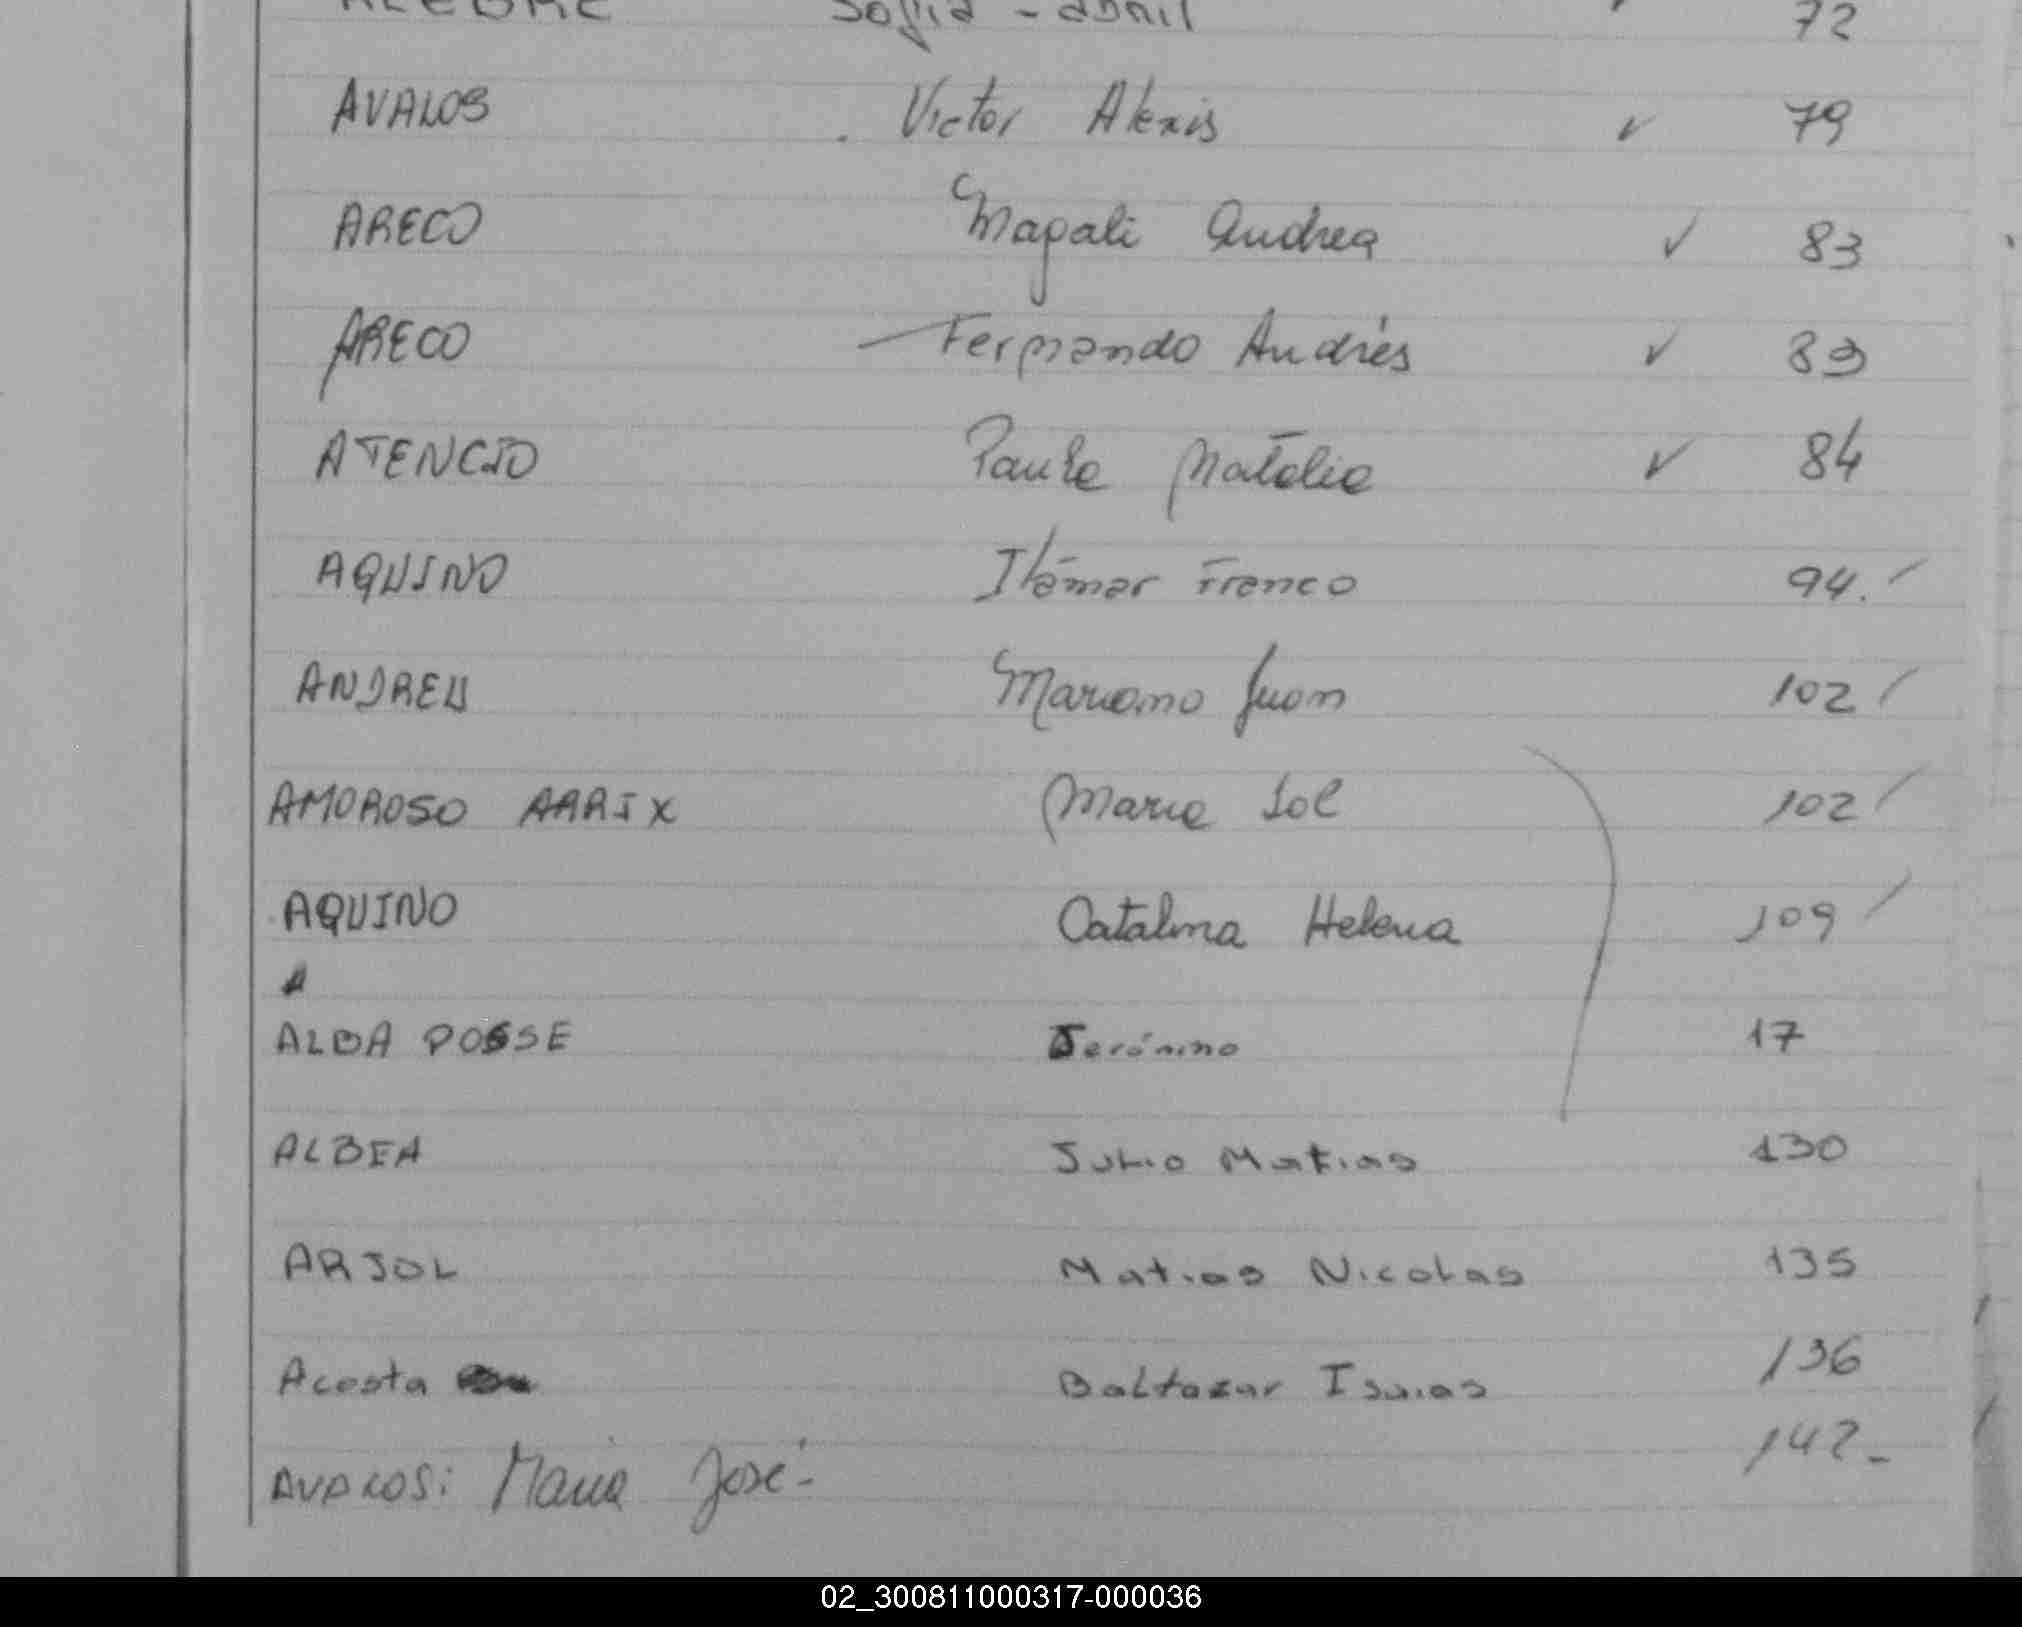 ALEGRE Sofia - abril 72
AVALOS Victor Alexis ✓ 79
ARECO Magali Andrea ✓ 83
ARECO Fernando Andrés ✓ 83
ATENCIO Paula Natalia ✓ 84
AQUINO Itámar Franco 94.
ANDREU Mariano Juan 102
AMOROSO ARRIX Maria Sol 102
AQUINO Catalina Helena 109
A
ALBA POSSE Jerónimo 17
ALBEA Julio Matias 130
ARJOL Matias Nicolas 135
Acosta Baltazar Isaias 136
AVALOS: Maria José - 142-
02_300811000317-000036